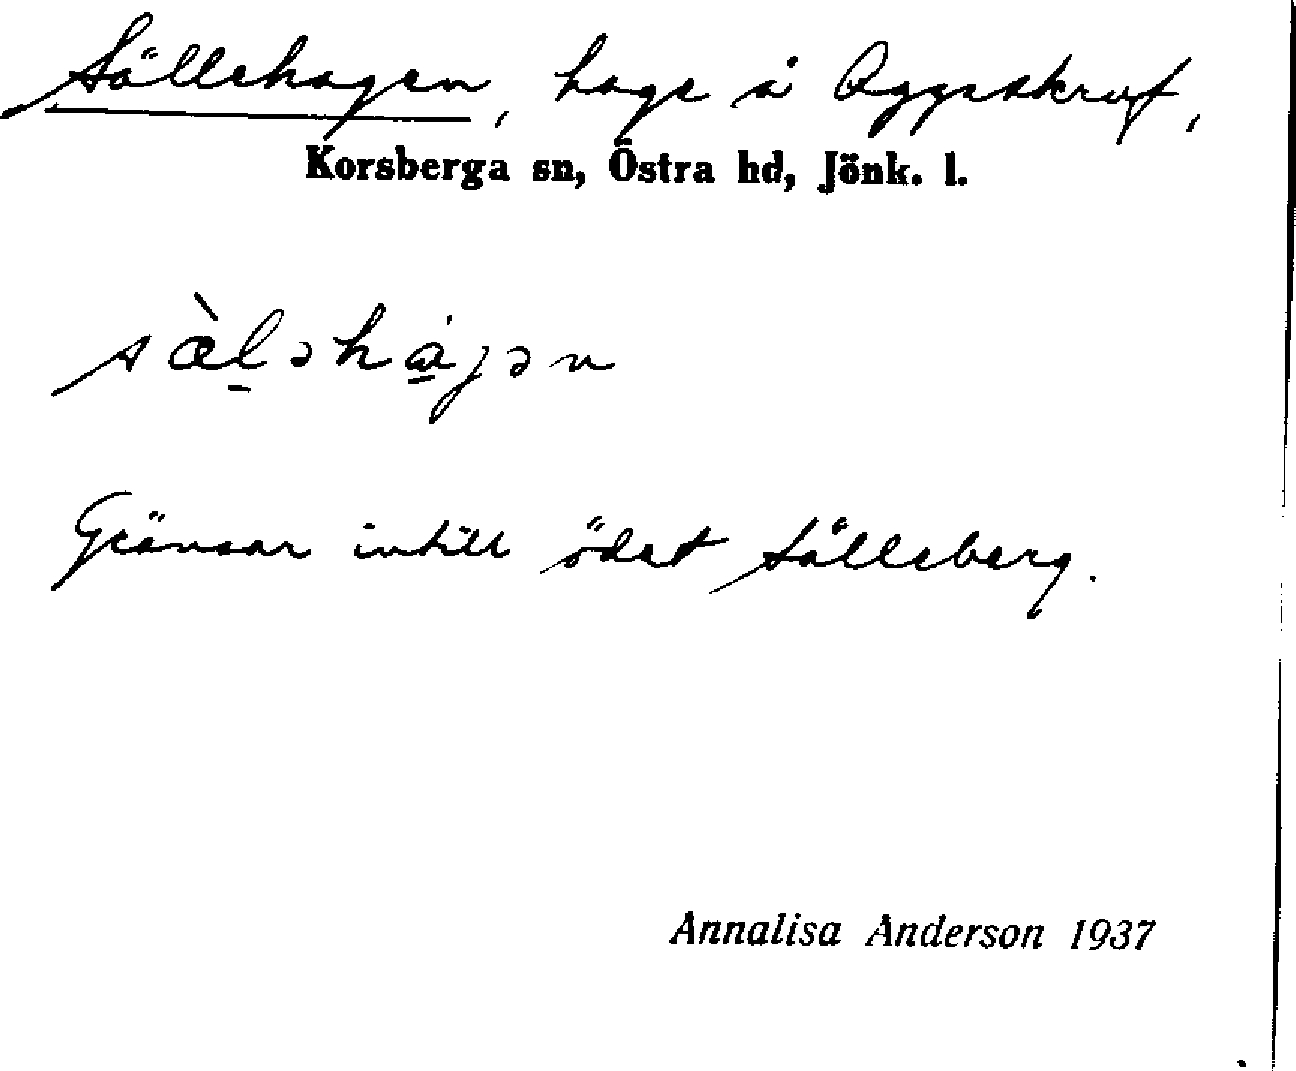 Sällehagen, hage å Äggaskruv,
Korsberga sn, Östra hd, Jönk. l.
sæ̀l̠əhá̠jən
Gränsar intill ödet Sälleberg.
Annalisa Anderson 1937